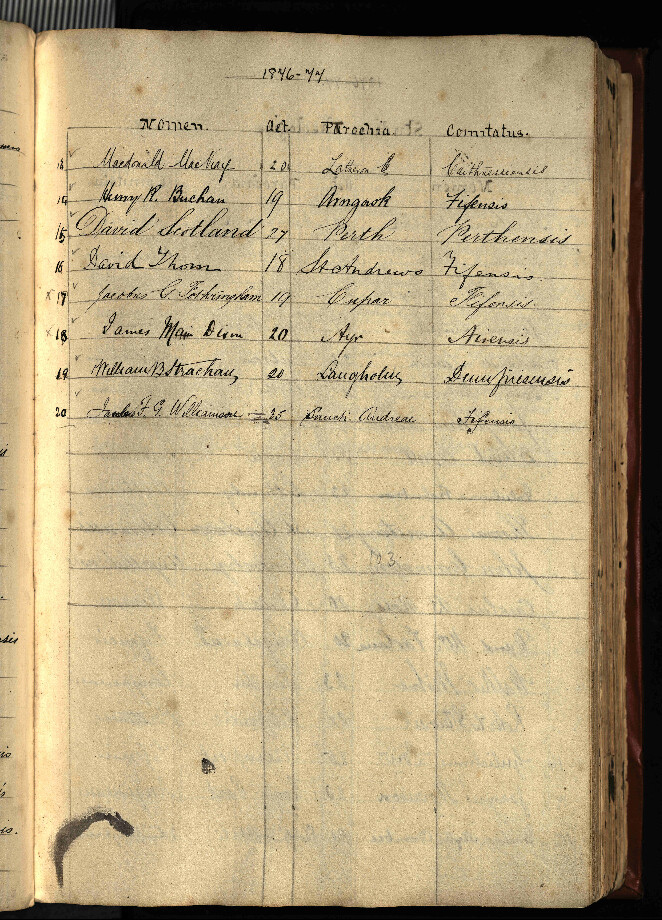 1876-77
Nomen. Aet. Parochia. Comitatus.
13 Macdonald Mackay 20 Latheron Caithnessensis
14 Henry R. Buchan 19 Arngask Fifensis
15 David Scotland 27 Perth Perthensis
16 David Thom 18 St Andrews Fifensis
x 17 Jacobus G. Fothringham 19 Cupar Fifensis
x 18 James 20 Ayr Airensis
19 William B Strachan 20 Langholm Dumfriesensis
20 James F. G. Williamson 25 Sancti Andreae Fifensis